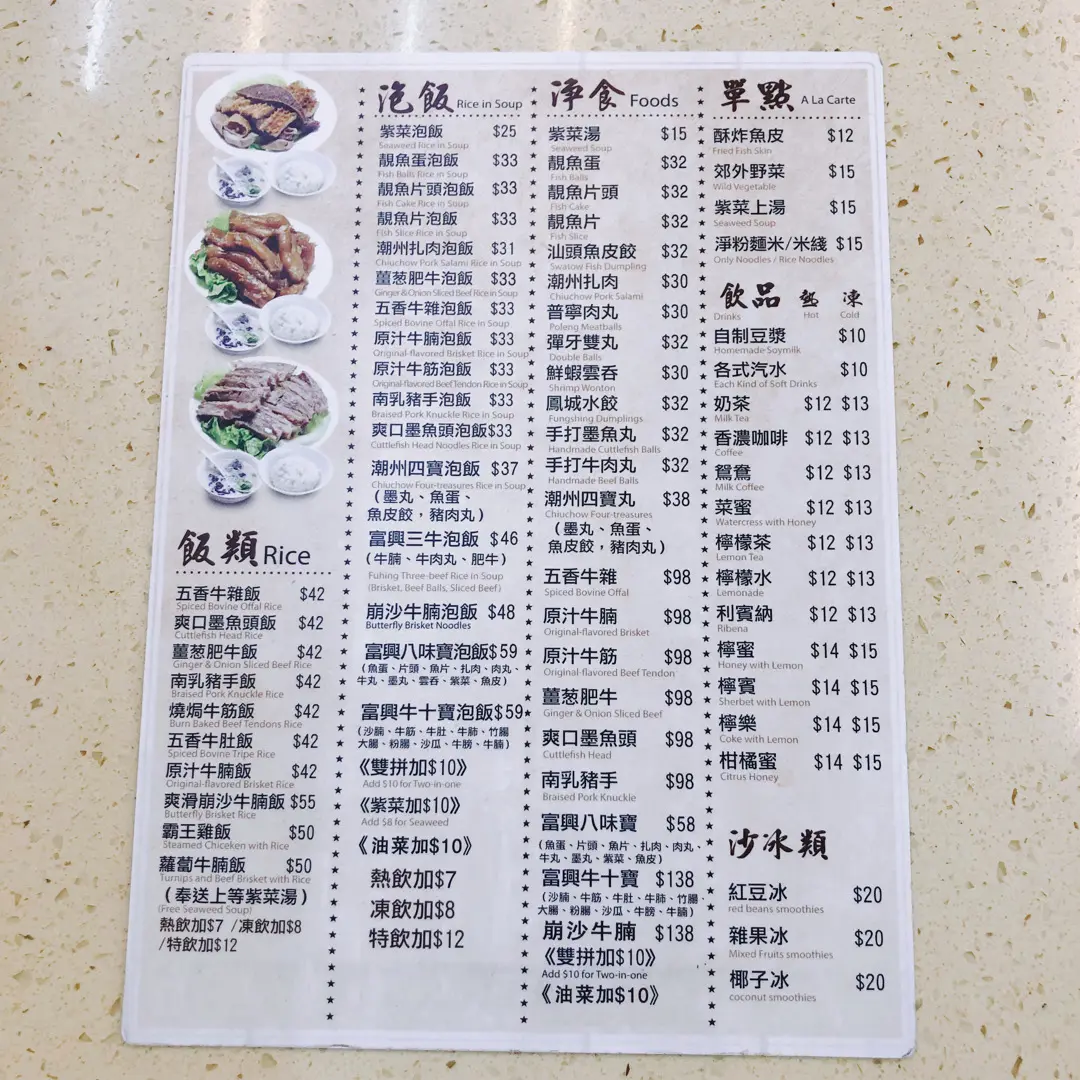 飯類 Rice
五香牛雜飯 $42
Spiced Bovine Offal Rice
爽口墨魚頭飯 $42
Cuttlefish Head Rice
薑葱肥牛飯 $42
Ginger & Onion Sliced Beef Rice
南乳豬手飯 $42
Braised Pork Knuckle Rice
燒焗牛筋飯 $42
Burn Baked Beef Tendons Rice
五香牛肚飯 $42
Spiced Bovine Tripe Rice
原汁牛腩飯 $42
Original-flavored Brisket Rice
爽滑崩沙牛腩飯 $55
Butterfly Brisket Rice
霸王雞飯 $50
Steamed Chiceken with Rice
蘿蔔牛腩飯 $50
Turnips and Beef Brisket with Rice
(奉送上等紫菜湯)
(Free Seaweed Soup)
熱飲加$7 /凍飲加$8
/特飲加$12
泡飯 Rice in Soup
紫菜泡飯 $25
Seaweed Rice in Soup
靚魚蛋泡飯 $33
Fish Balls Rice in Soup
靚魚片頭泡飯 $33
Fish Cake Rice in Soup
靚魚片泡飯 $33
Fish Slice Rice in Soup
潮州扎肉泡飯 $31
Chiuchow Pork Salami Rice in Soup
薑葱肥牛泡飯 $33
Ginger & Onion Sliced Beef Rice in Soup
五香牛雜泡飯 $33
Spiced Bovine Offal Rice in Soup
原汁牛腩泡飯 $33
Original-flavored Brisket Rice in Soup
原汁牛筋泡飯 $33
Original-flavored Beef Tendon Rice in Soup
南乳豬手泡飯 $33
Braised Pork Knuckle Rice in Soup
爽口墨魚頭泡飯$33
Cuttlefish Head Noodles Rice in Soup
潮州四寶泡飯 $37
Chiuchow Four-treasures Rice in Soup
(墨丸、魚蛋、
魚皮餃，豬肉丸)
富興三牛泡飯 $46
(牛腩、牛肉丸、肥牛)
Fuhing Three-beef Rice in Soup
(Brisket, Beef Balls, Sliced Beef)
崩沙牛腩泡飯 $48
Butterfly Brisket Noodles
富興八味寶泡飯$59
(魚蛋、片頭、魚片、扎肉、肉丸、
牛丸、墨丸、雲吞、紫菜、魚皮)
富興牛十寶泡飯$59
(沙腩、牛筋、牛肚、牛肺、竹腸
大腸、粉腸、沙瓜、牛膀、牛腩)
《雙拼加$10》
Add $10 for Two-in-one
《紫菜加$10》
Add $8 for Seaweed
《油菜加$10》
熱飲加$7
凍飲加$8
特飲加$12
淨食 Foods
紫菜湯 $15
Seaweed Soup
靚魚蛋 $32
Fish Balls
靚魚片頭 $32
Fish Cake
靚魚片 $32
Fish Slice
汕頭魚皮餃 $32
Swatow Fish Dumpling
潮州扎肉 $30
Chiuchow Pork Salami
普寧肉丸 $30
Poleng Meatballs
彈牙雙丸 $32
Double Balls
鮮蝦雲呑 $30
Shrimp Wonton
鳳城水餃 $32
Fungshing Dumplings
手打墨魚丸 $32
Handmade Cuttlefish Balls
手打牛肉丸 $32
Handmade Beef Balls
潮州四寶丸 $38
Chiuchow Four-treasures
(墨丸、魚蛋、
魚皮餃，豬肉丸)
五香牛雜 $98
Spiced Bovine Offal
原汁牛腩 $98
Original-flavored Brisket
原汁牛筋 $98
Original-flavored Beef Tendon
薑葱肥牛 $98
Ginger & Onion Sliced Beef
爽口墨魚頭 $98
Cuttlefish Head
南乳豬手 $98
Braised Pork Knuckle
富興八味寶 $58
(魚蛋、片頭、魚片、扎肉、肉丸、
牛丸、墨丸、紫菜、魚皮)
富興牛十寶 $138
(沙腩、牛筋、牛肚、牛肺、竹腸、
大腸、粉腸、沙瓜、牛膀、牛腩)
崩沙牛腩 $138
《雙拼加$10》
Add $10 for Two-in-one
《油菜加$10》
單點 A La Carte
酥炸魚皮 $12
Fried Fish Skin
郊外野菜 $15
Wild Vegetable
紫菜上湯 $15
Seaweed Soup
淨粉麵米/米綫 $15
Only Noodles / Rice Noodles
飲品 熱 凍
Drinks Hot Cold
自制豆漿 $10
Homemade Soymilk
各式汽水 $10
Each Kind of Soft Drinks
奶茶 $12 $13
Milk Tea
香濃咖啡 $12 $13
Coffee
鴛鴦 $12 $13
Milk Coffee
菜蜜 $12 $13
Watercress with Honey
檸檬茶 $12 $13
Lemon Tea
檸檬水 $12 $13
Lemonade
利賓納 $12 $13
Ribena
檸蜜 $14 $15
Honey with Lemon
檸賓 $14 $15
Sherbet with Lemon
檸樂 $14 $15
Coke with Lemon
柑橘蜜 $14 $15
Citrus Honey
沙冰類
紅豆冰 $20
red beans smoothies
雜果冰 $20
Mixed Fruits smoothies
椰子冰 $20
coconut smoothies